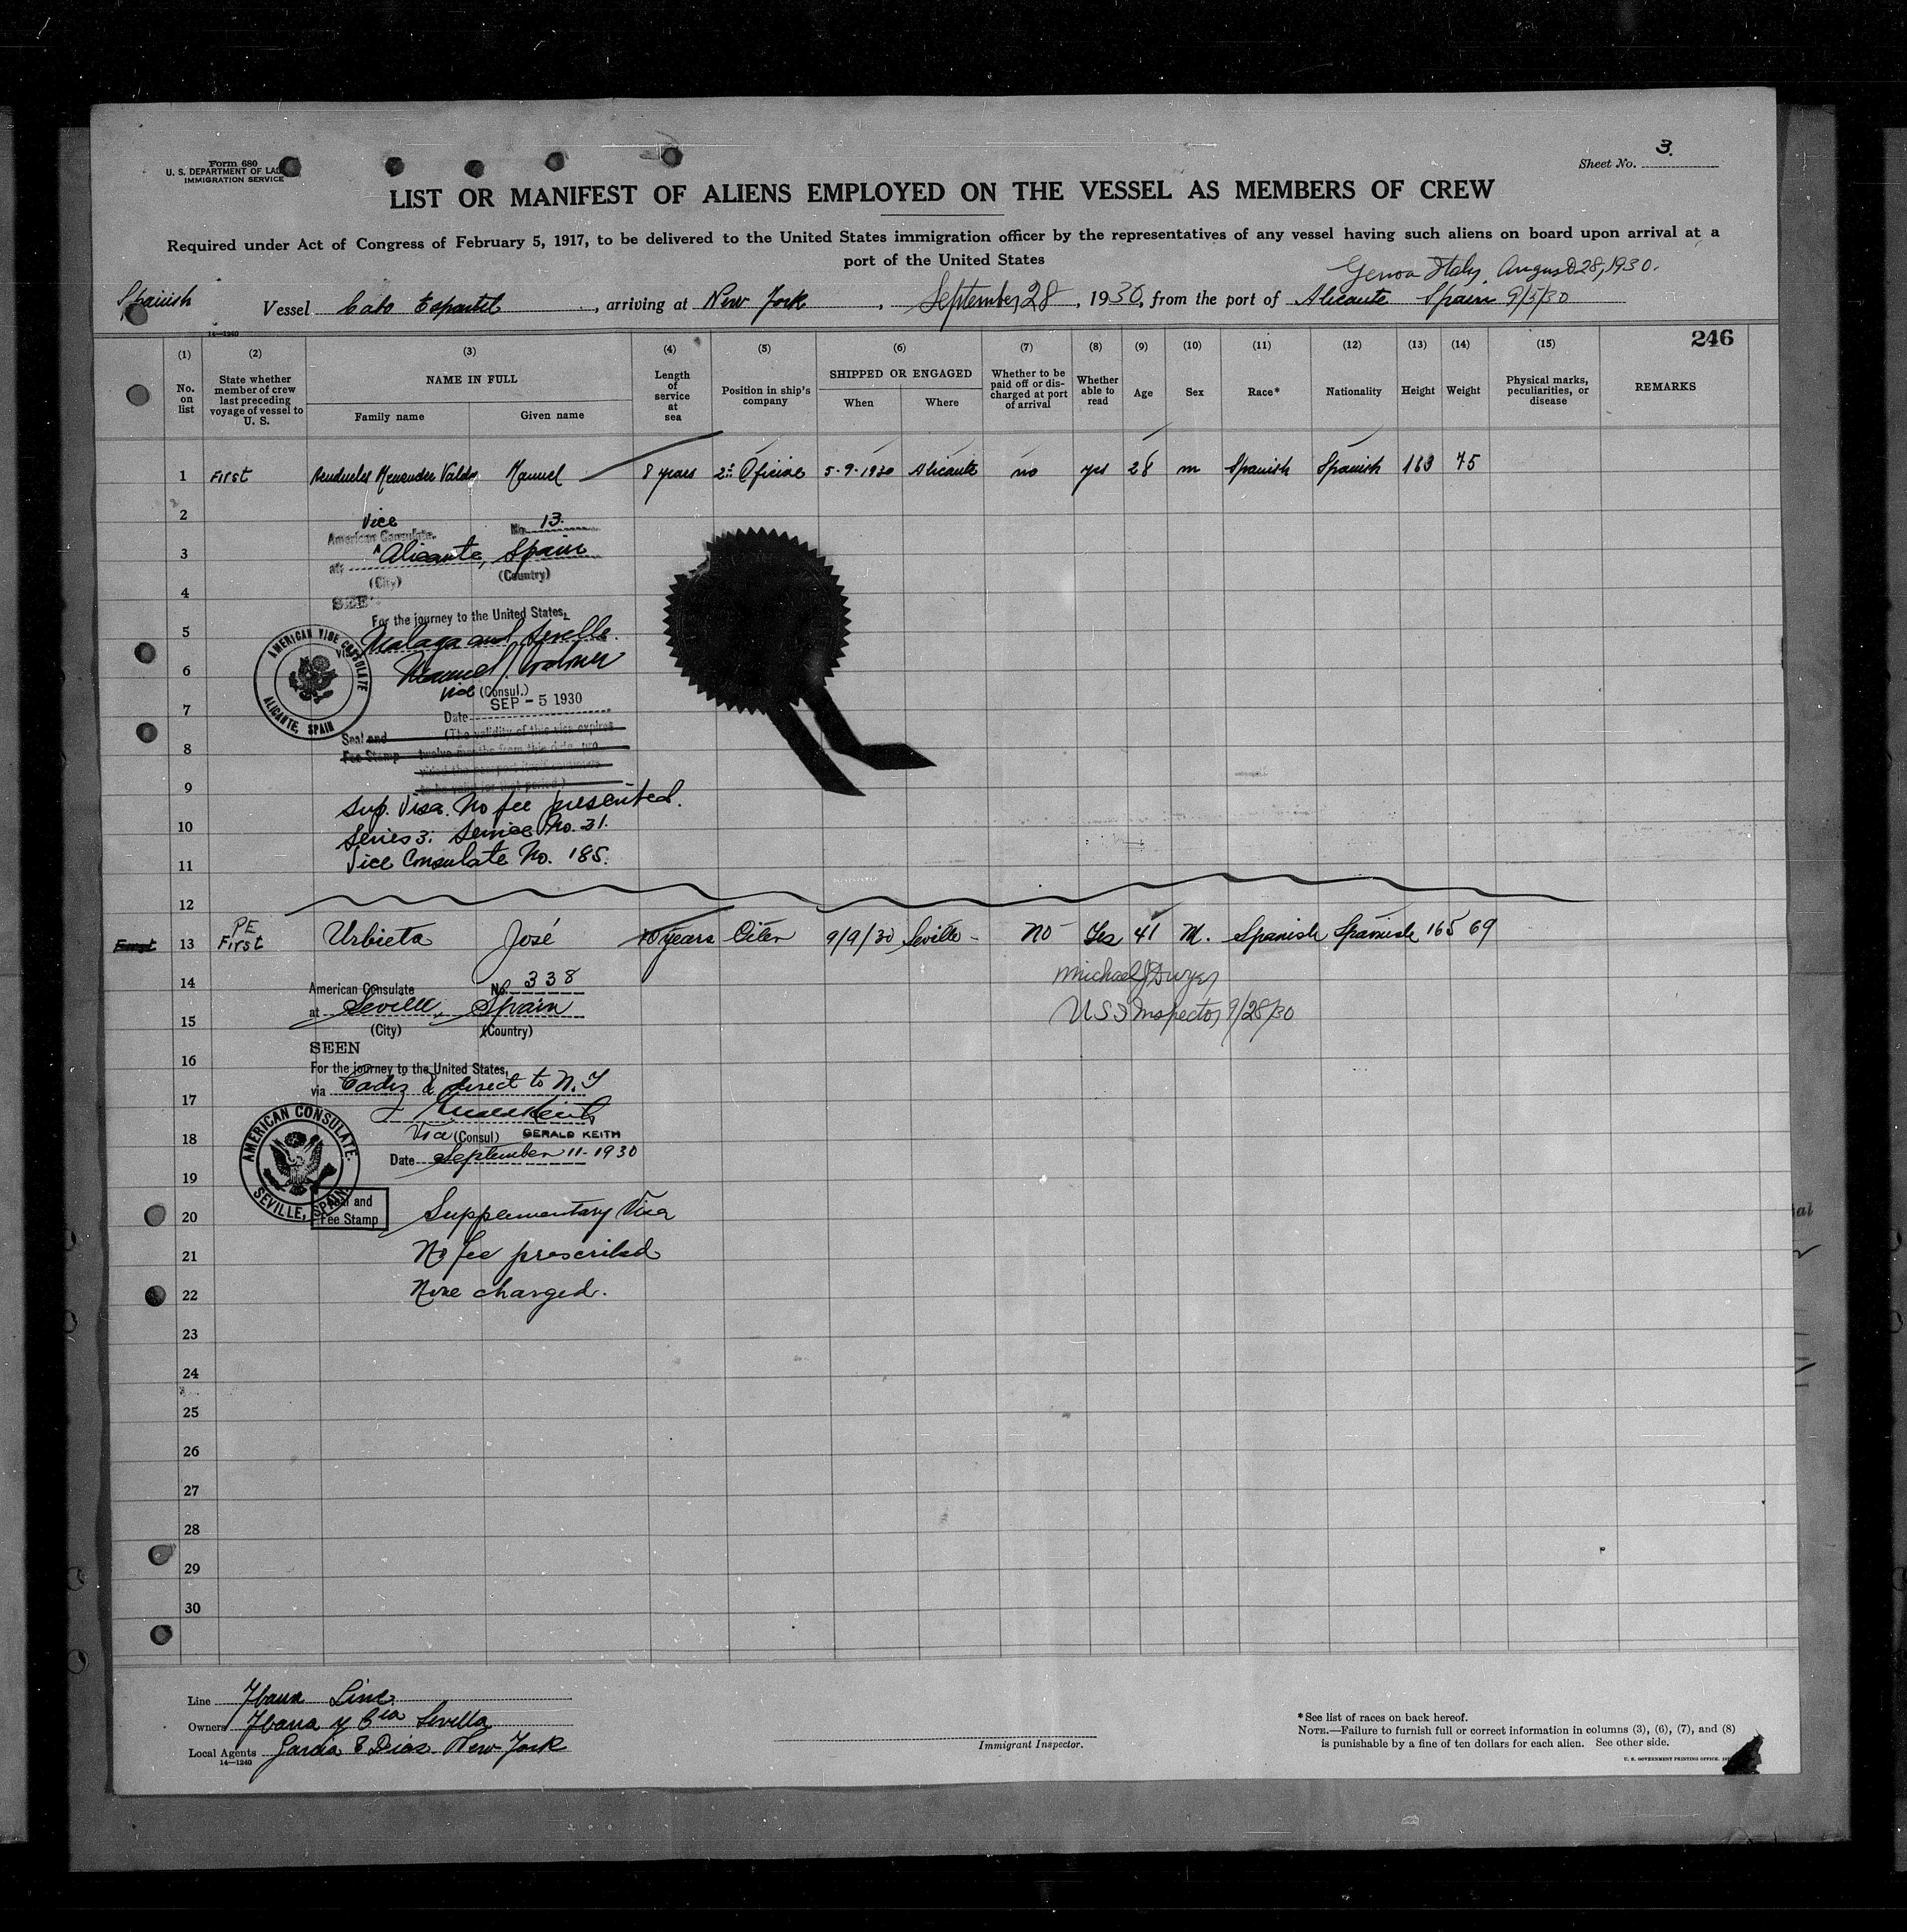 Form 680
U. S. DEPARTMENT OF LAB
IMMIGRATION SERVICE
Sheet No. 3.
LIST OR MANIFEST OF ALIENS EMPLOYED ON THE VESSEL AS MEMBERS OF CREW
Required under Act of Congress of February 5, 1917, to be delivered to the United States immigration officer by the representatives of any vessel having such aliens on board upon arrival at a
port of the United States
Genoa Italy, August 28, 1930.
Spanish Vessel Cabo Espartel, arriving at New York, September 28, 1930, from the port of Alicante Spain 9/5/30
14—1240
246
(1) (2) (3) (4) (5) (6) (7) (8) (9) (10) (11) (12) (13) (14) (15)
No. on list
State whether member of crew last preceding voyage of vessel to U. S.
NAME IN FULL
Family name
Given name
Length of service at sea
Position in ship's company
SHIPPED OR ENGAGED
When
Where
Whether to be paid off or discharged at port of arrival
Whether able to read
Age
Sex
Race*
Nationality
Height
Weight
Physical marks, peculiarities, or disease
REMARKS
1 First Menendez Valdes Manuel 8 years 2º Oficial 5-9-1930 Alicante no yes 28 m Spanish Spanish 163 75
2
Vice
American Consulate. No. 13.
3
at Alicante, Spain
(City) (Country)
4
SEE
For the journey to the United States,
5
via Malaga and Seville.
AMERICAN VICE CONSULATE
ALICANTE, SPAIN
6
Vice (Consul.)
7
Date SEP - 5 1930
Seal and (The validity of this visa expires
8
Fee Stamp twelve months from this date, pro-
vided the passport itself continues
9
to be valid for that period.)
Sup. Visa. No fee presented.
10
Series 3: Service No. 31.
11
Vice Consulate No. 185.
12
PE
First 13 First Urbieta José 10 years Oiler 9/9/30 Seville - No Yes 41 M. Spanish Spanish 165 69
14
American Consulate No. 338
Michael J Dwyer
15
at Seville, Spain
U S I Inspector 9/28/30
(City) (Country)
SEEN
16
For the journey to the United States,
via Cadiz & direct to N.Y
17
18
Vice (Consul) GERALD KEITH
AMERICAN CONSULATE.
SEVILLE, SPAIN
Date September 11 - 1930
19
Seal and
Fee Stamp
20
Supplementary Visa
21
No fee prescribed
22
None charged.
23
24
25
26
27
28
29
30
Line Ybarra Line.
Owners Ybarra y Cia Sevilla
Local Agents Garcia & Diaz New York
14—1240
Immigrant Inspector.
*See list of races on back hereof.
NOTE.—Failure to furnish full or correct information in columns (3), (6), (7), and (8)
is punishable by a fine of ten dollars for each alien. See other side.
U. S. GOVERNMENT PRINTING OFFICE.